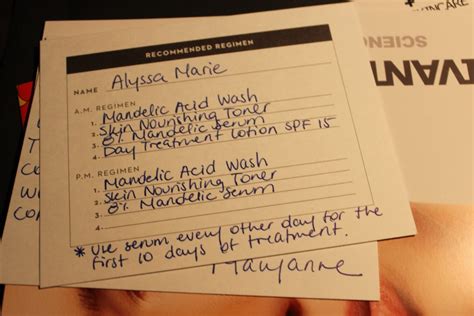 SKINCARE
IVANT
SCIEN
RECOMMENDED REGIMEN
NAME Alyssa Marie
A.M. REGIMEN
1. Mandelic Acid Wash
2. Skin Nourishing Toner
3. 8% Mandelic Serum
4. Day Treatment Lotion SPF 15
P.M. REGIMEN
1. Mandelic Acid Wash
2. Skin Nourishing Toner
3. 8% Mandelic Serum
4.
* Use serum every other day for the
first 10 days of treatment.
Maryanne